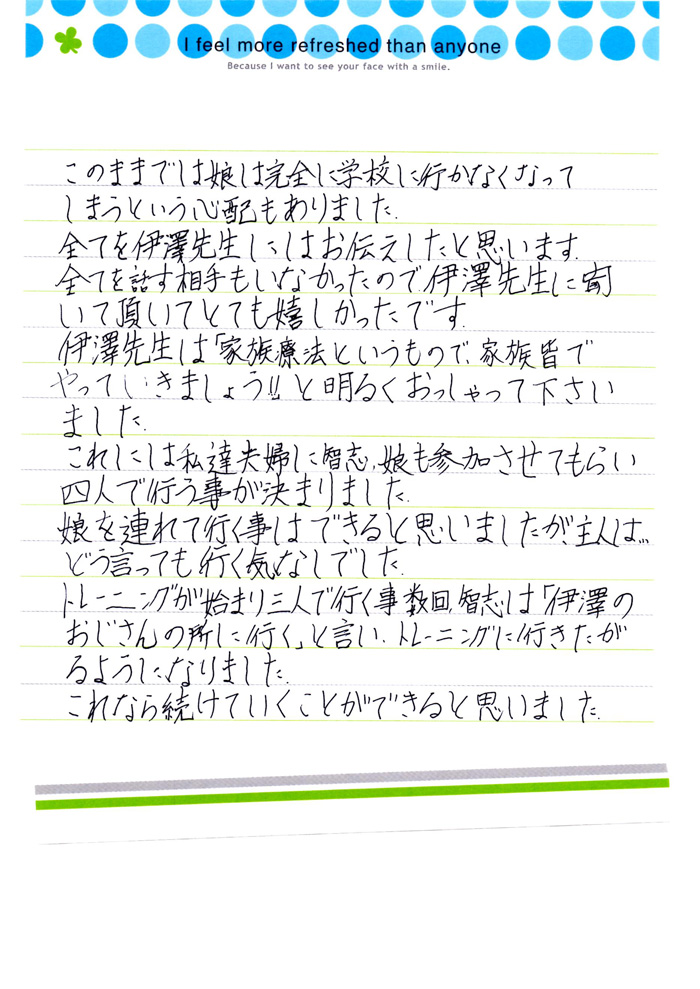 I feel more refreshed than anyone
Because I want to see your face with a smile.
このままでは娘は完全に学校に行かなくなって
しまうという心配もありました.
全てを伊澤先生にはお伝えしたと思います.
全てを話す相手もいなかったので伊澤先生に聞
いて頂いてとても嬉しかったです.
伊澤先生は「家族療法というもので、家族皆で
やっていきましょう!!と明るくおっしゃって下さい
ました.
これには私達夫婦に智志、娘も参加させてもらい
四人で行う事が決まりました.
娘を連れて行く事はできると思いましたが、主人は…
どう言っても行く気なしでした.
トレーニングが始まり三人で行く事数回、智志は「伊澤の
おじさんの所に行く」と言い、トレーニングに行きたが
るようになりました.
これなら続けていくことができると思いました.